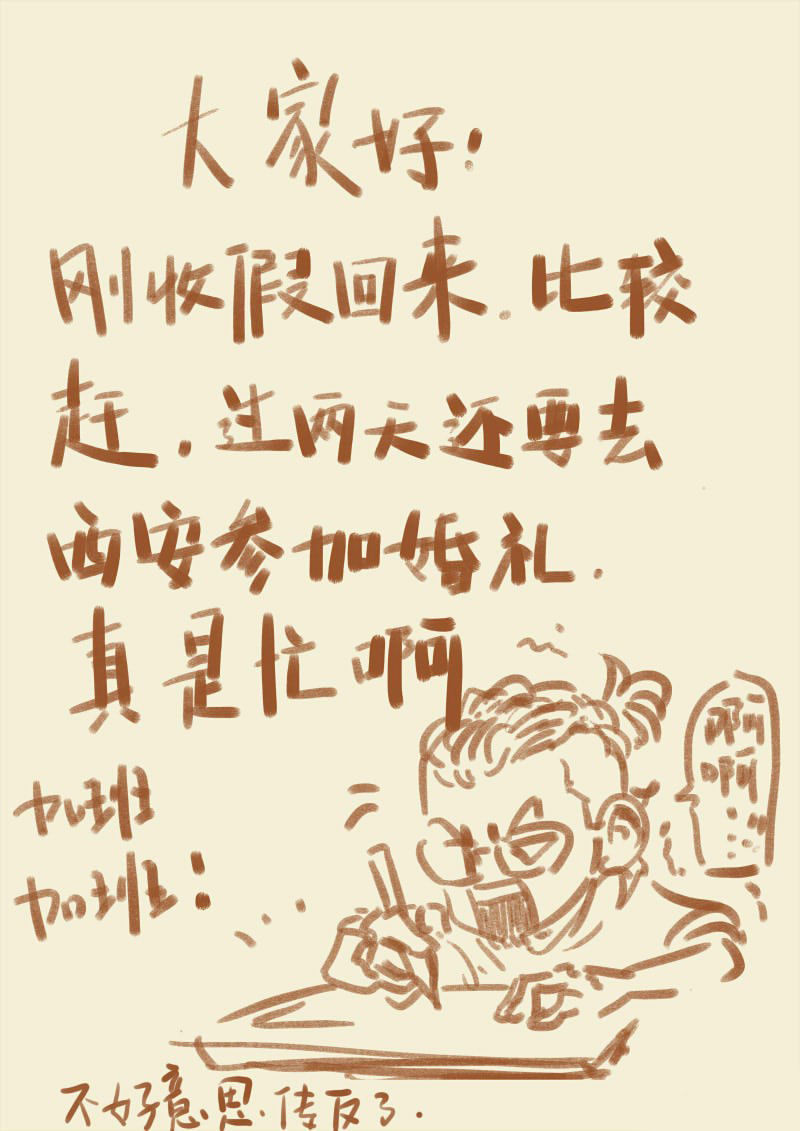 大家好！
刚收假回来.比较
赶.过两天还要去
西安参加婚礼.
真是忙啊
啊
啊
加班
加班！
不好意思.传反了.